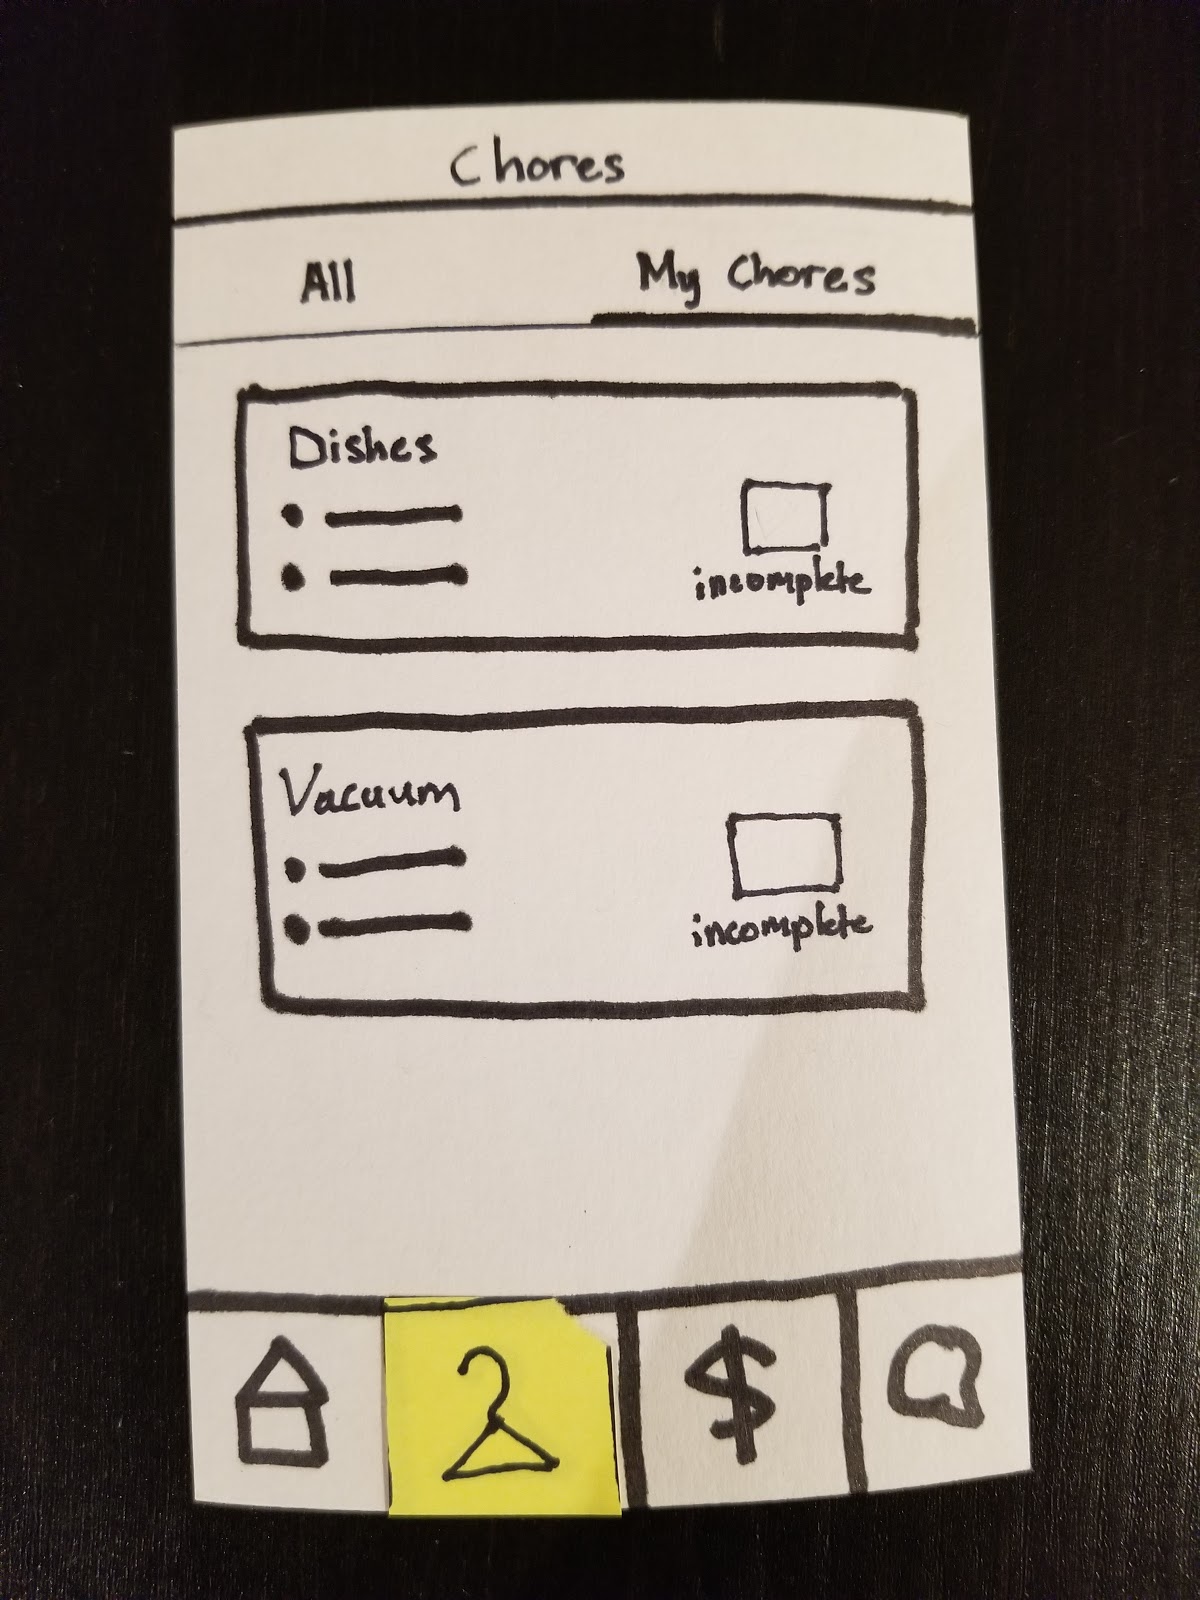 Chores
All
My Chores
Dishes
incomplete
Vacuum
incomplete
$